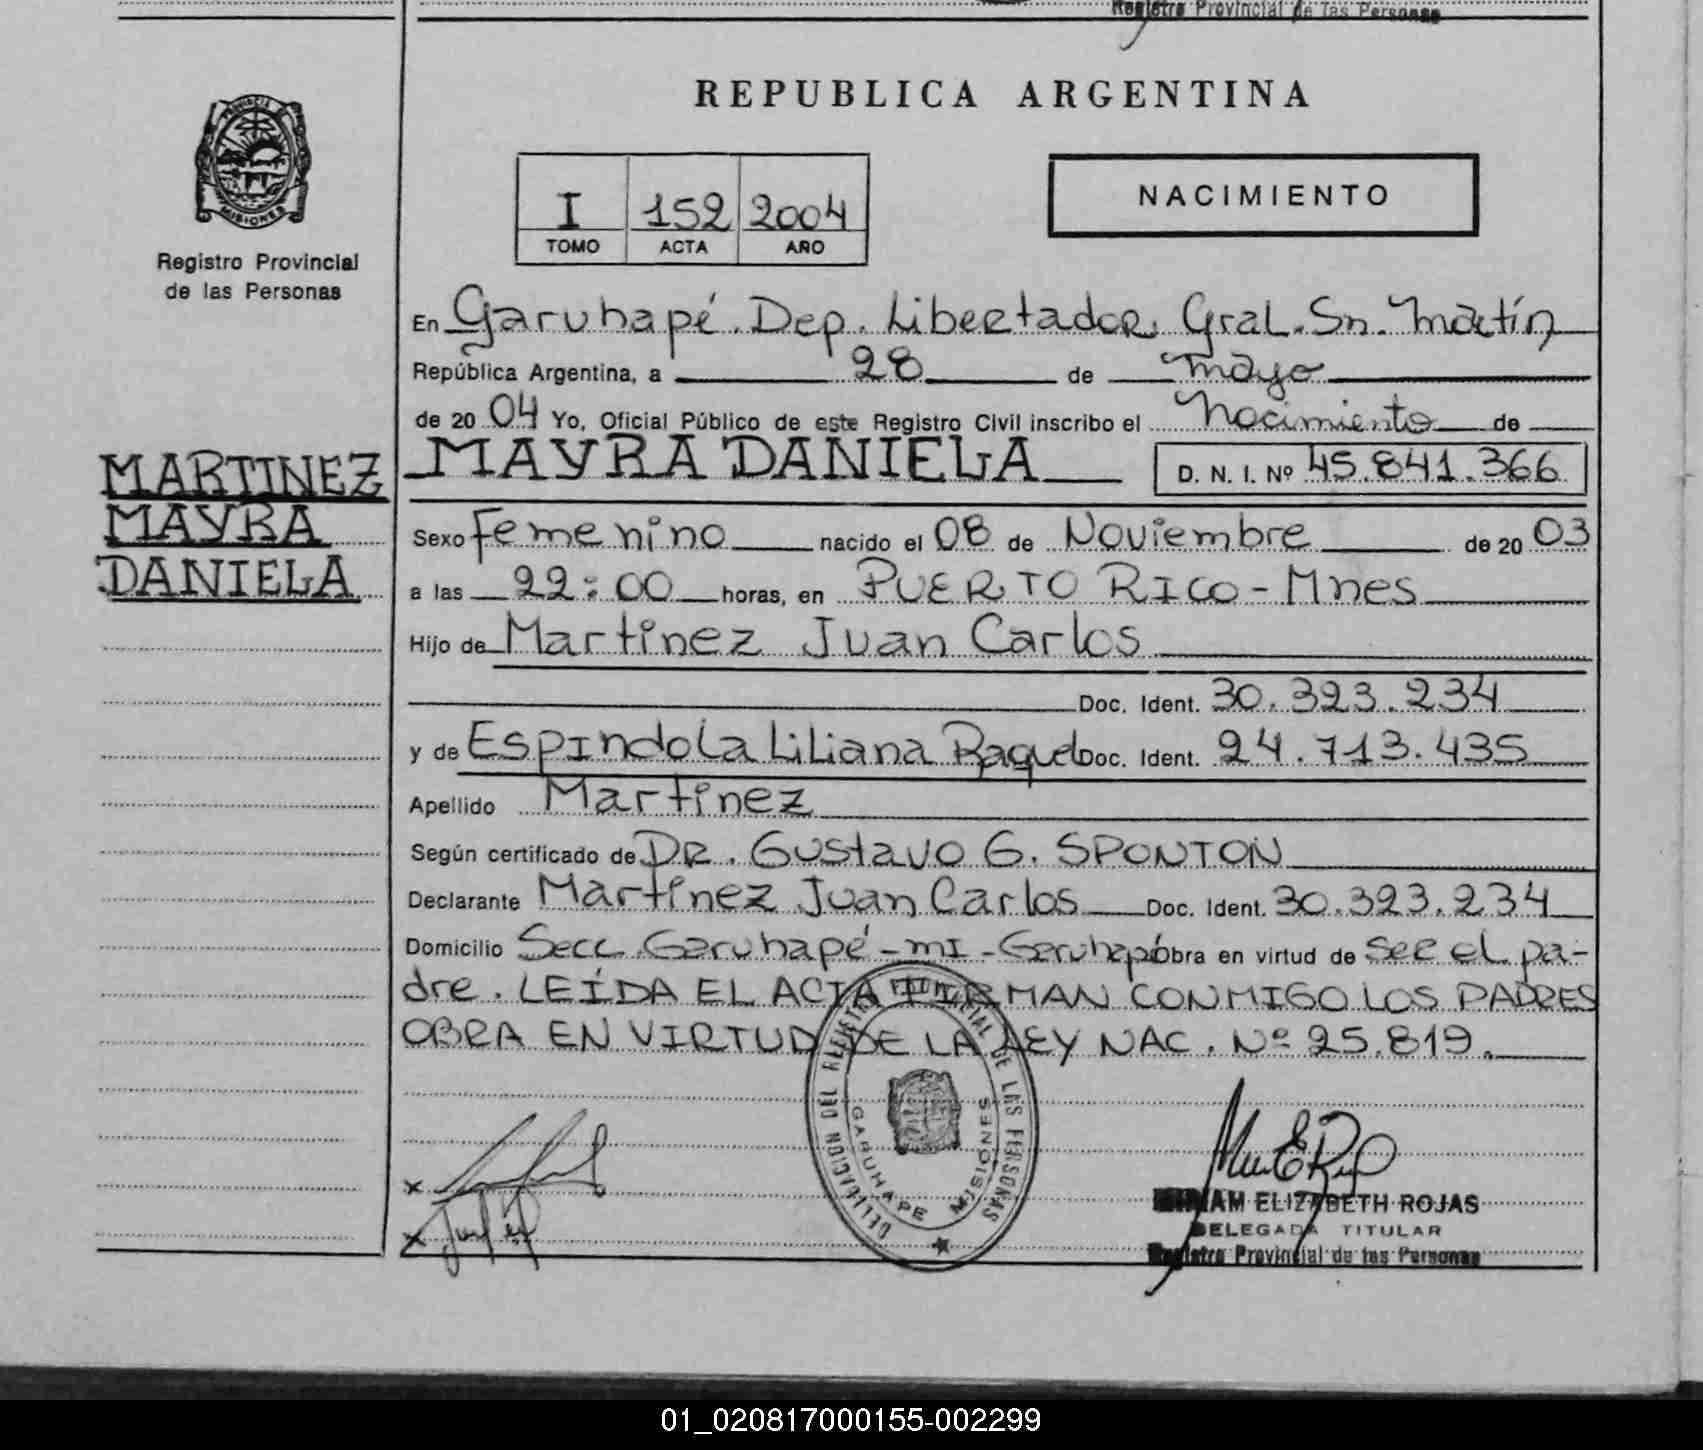 Registro Provincial de las Personas
REPUBLICA ARGENTINA
PROVINCIA DE MISIONES
Registro Provincial
de las Personas
I 152 2004
TOMO ACTA AÑO
NACIMIENTO
En Garuhapé. Dep. Libertador. Gral. Sn. Martín
República Argentina, a 28 de mayo
de 2004 Yo, Oficial Público de este Registro Civil inscribo el Nacimiento de
MAYRA DANIELA D. N. I. Nº 45.841.366
MARTINEZ
MAYRA
DANIELA
Sexo Femenino nacido el 08 de Noviembre de 2003
a las 22:00 horas, en PUERTO RICO - Mnes
Hijo de Martinez Juan Carlos
Doc. Ident. 30.323.234
y de Espindola Liliana Raquel Doc. Ident. 24.713.435
Apellido Martinez
Según certificado de DR. Gustavo G. SPONTON
Declarante Martinez Juan Carlos Doc. Ident. 30.323.234
Domicilio Secc. Garuhapé-mI - Garuhapé obra en virtud de ser el pa-
dre. LEÍDA EL ACTA FIRMAN CONMIGO LOS PADRES
OBRA EN VIRTUD DE LA LEY NAC. Nº 25.819.
DELEGACION DEL REGISTRO PROVINCIAL DE LAS PERSONAS
GARUHAPE MISIONES
MIRIAM ELIZABETH ROJAS
DELEGADA TITULAR
Registro Provincial de las Personas
01_020817000155-002299